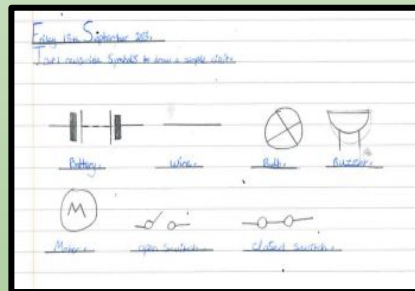 Friday 15th September 2023.
I can recognise Symbols to draw a simple
Battery. Wire. Bulb. Buzzer.
M
Motor. open switch. closed switch.